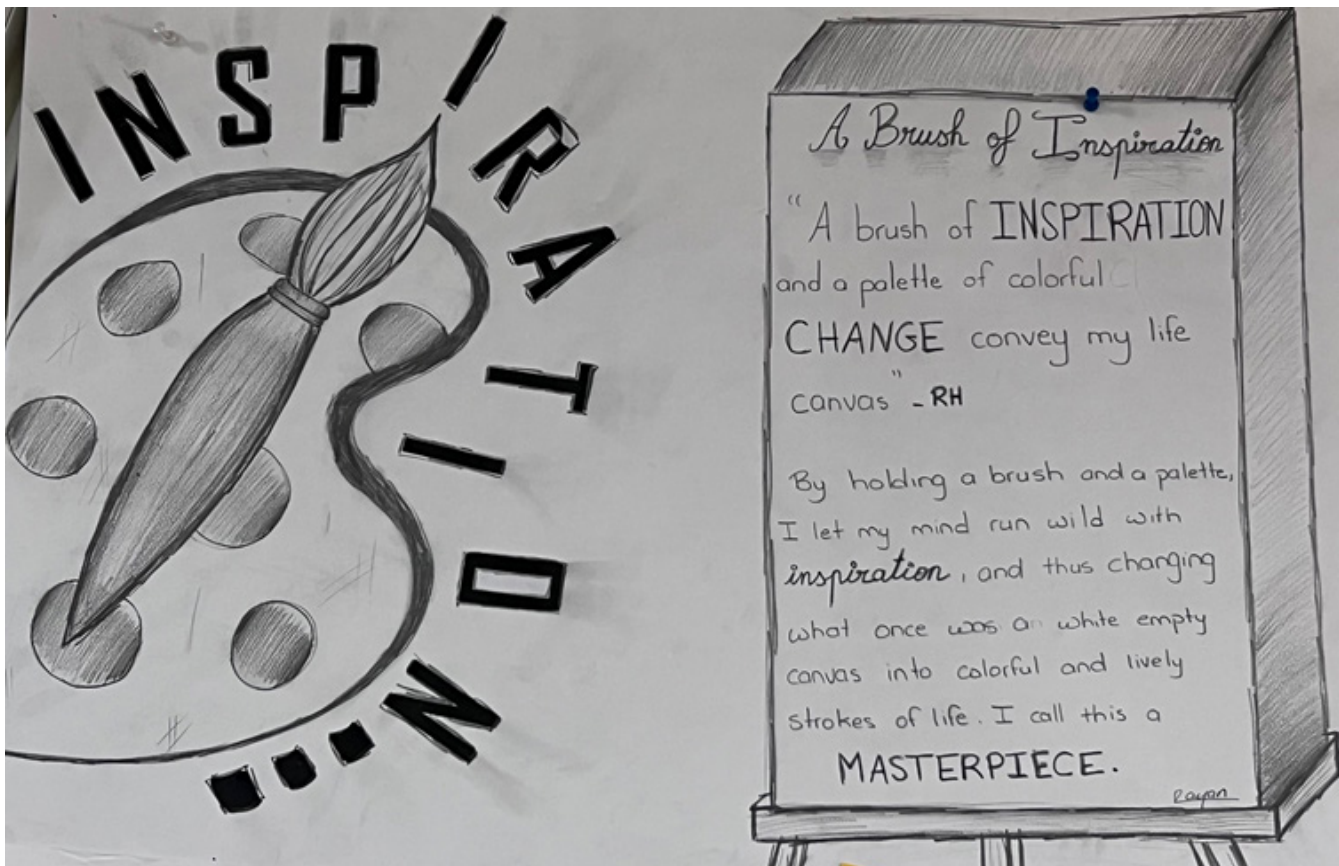 INSPIRATION...
A Brush of Inspiration
"A brush of INSPIRATION
and a palette of colorful
CHANGE convey my life
canvas" - RH
By holding a brush and a palette,
I let my mind run wild with
inspiration, and thus changing
what once was a white empty
canvas into colorful and lively
strokes of life. I call this a
MASTERPIECE.
Rayan